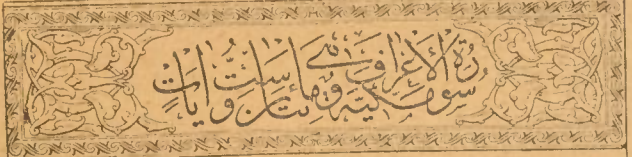 سُورَةُ الْأَعْرَافِ مَكِّيَّةٌ وَهِيَ مِائَتَانِ وَسِتُّ اٰيَاتٍ